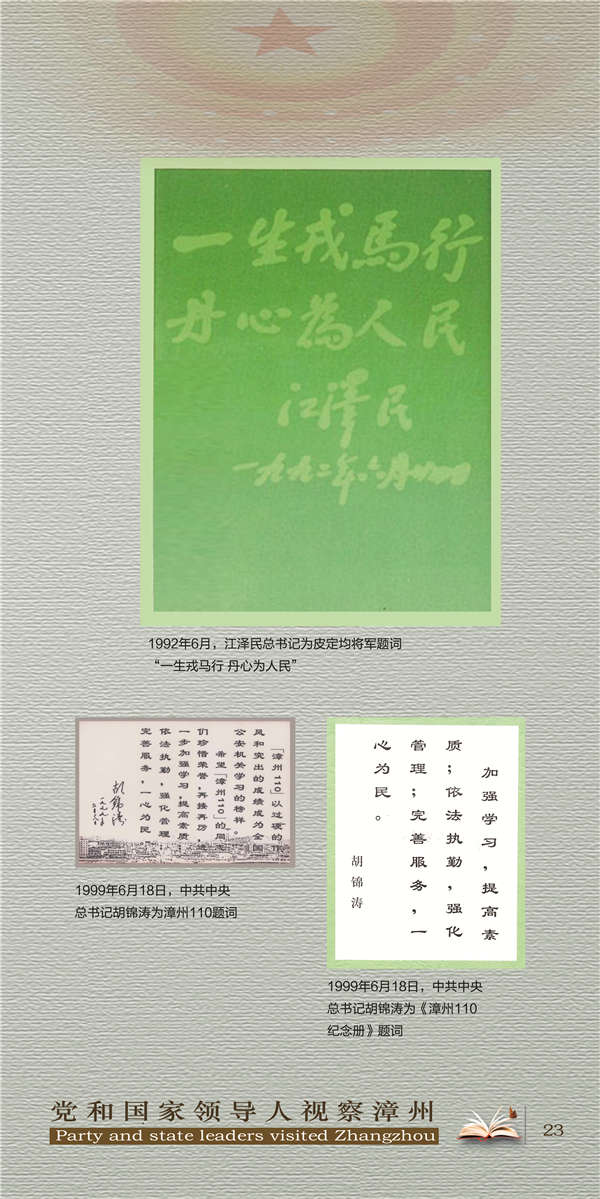 一生戎馬行
丹心為人民
江澤民
一九九二年六月
1992年6月，江泽民总书记为皮定均将军题词
“一生戎马行 丹心为人民”
「漳州110」以过硬的作
风和突出的成绩成为全国
公安机关学习的榜样。
希望「漳州110」的同志
们珍惜荣誉，再接再厉，进
一步加强学习，提高素质
依法执勤，强化管理
完善服务，一心为民
胡锦涛
一九九九年
1999年6月18日，中共中央
总书记胡锦涛为漳州110题词
加强学习，提高素
质；依法执勤，强化
管理；完善服务，一
心为民。
胡锦涛
1999年6月18日，中共中央
总书记胡锦涛为《漳州110
纪念册》题词
党和国家领导人视察漳州
Party and state leaders visited Zhangzhou
23